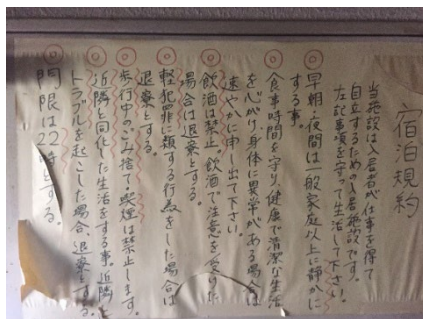 宿泊規約
当施設は入居者が仕事を得て
自立するための入居施設です。
左記事項を守って生活して下さい。
◎早朝、夜間は一般家庭以上に静かに
する事。
◎食事時間を守り、健康で清潔な生活
を心がけ、身体に異常がある場合は
速やかに申し出て下さい。
◎飲酒は禁止。飲酒で注意を受けた
場合は退寮とする。
◎軽犯罪に類する行為をした場合は
退寮とする。
◎歩行中のごみ捨て・喫煙は禁止します。
◎近隣と同化した生活をする事。近隣と
トラブルを起こした場合、退寮とする。
◎門限は22時とする。